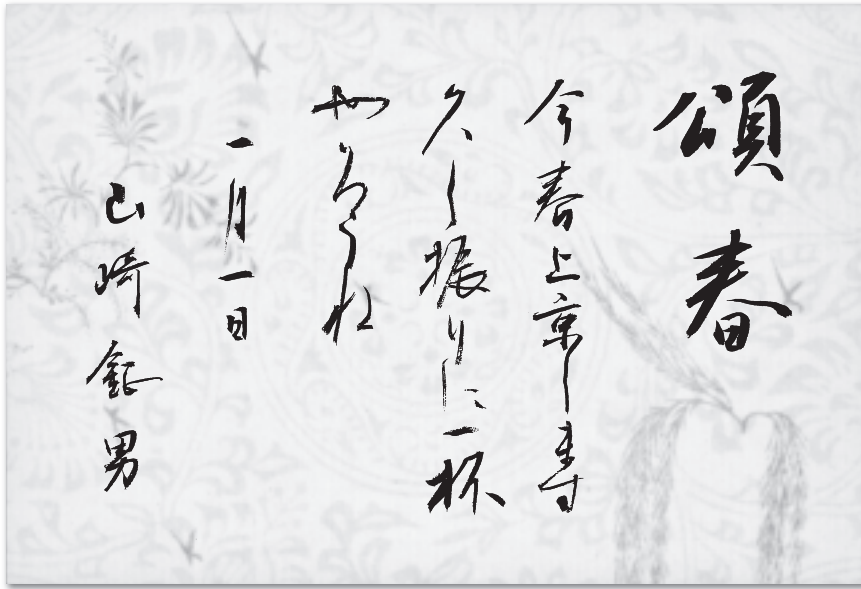 頌春
今春上京します
久し振りに一杯
やろうね
一月一日
山崎銀男